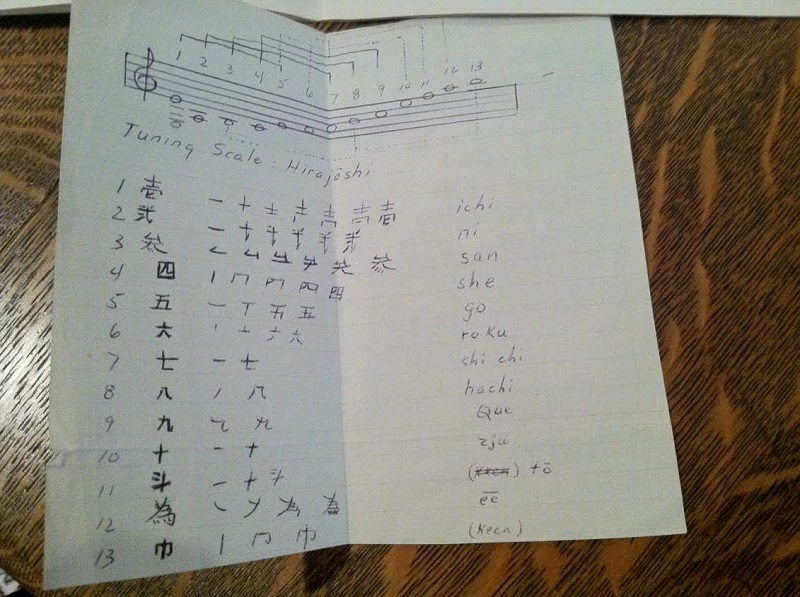 1 2 3 4 5 6 7 8 9 10 11 12 13
Tuning Scale : Hirajōshi
1 壱 一 十 士 声 壱 ichi
2 弐 一 弐 ni
3 参 参 san
4 四 丨 冂 四 she
5 五 一 丅 五 五 go
6 六 丶 亠 六 六 roku
7 七 一 七 shi chi
8 八 ノ 八 hachi
9 九 九 Que
10 十 一 十 zju
11 斗 一 十 斗 tō
12 為 為 為 ēē
13 巾 丨 冂 巾 (Keen)